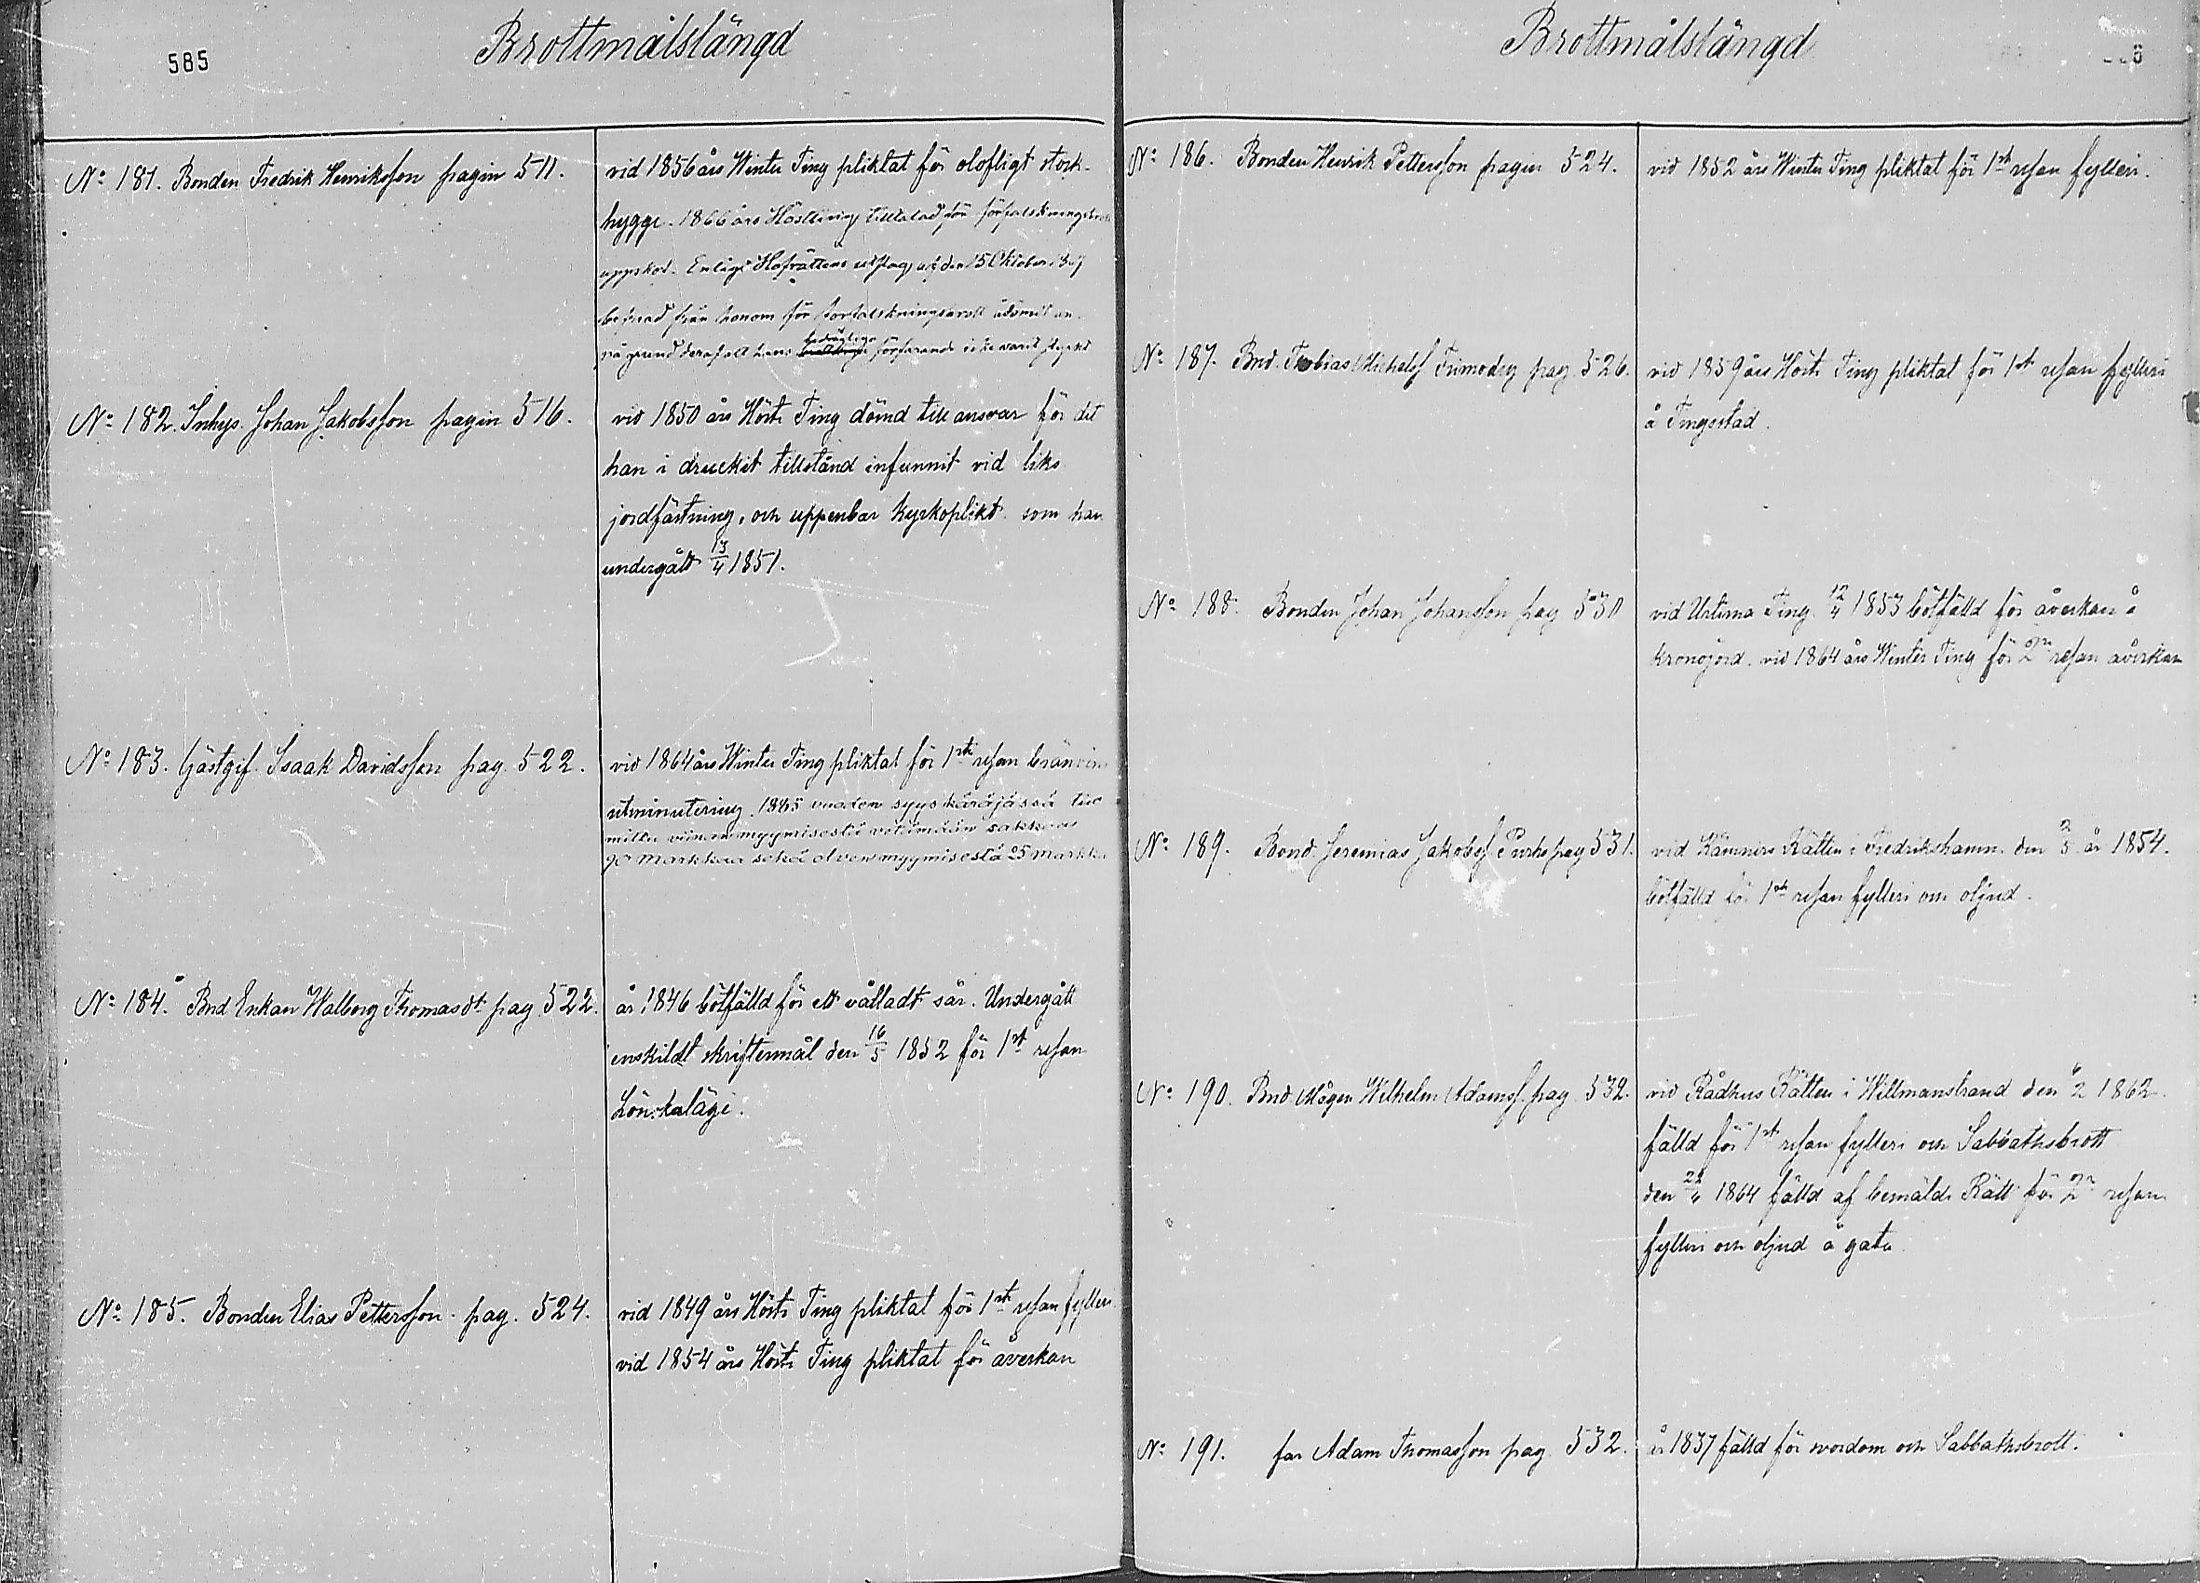 585
Brottmålslängd
No 181. Bonden Fredrik Henriksson pagin 511.
vid 1856 års Winter Ting pliktat för olofligt stork-
hygge. 1866 års Höstting tilltalad för förfalskningsbrott
uppskof. Enligt Hofrättens utslag af den 15 Oktober 1867
befriad från honom för förfalskningsbrott ådömdt an-
på grund deraf att hans bedrägliga förfarande icke varit styrkt
No 182. Inhys. Johan Jakobsson pagin 516.
vid 1850 års Höste Ting dömd till ansvar för det
han i drucket tillstånd infunnit vid liks
jordfästning, och uppenbar kyrkoplikt som han
undergått 13/4 1851.
No 183. Gästgif. Isaak Davidsson pag. 522.
vid 1864 års Winter Ting pliktat för 1sta resan bränvins
utminutering. 1885 vuoden syys käräjässä tuo
mittu viinan myymisestä vetämään sakkoa
90 markkaa sekä oluen myymisestä 25 markka
No 184. Bnd Enkan Walborg Thomasdt pag. 522.
år 1846 botfälld för ett vålladt sår. Undergått
enskildt skriftermål den 16/5 1852 för 1st resan
Lönskaläge.
No 185. Bonden Elias Pettersson pag. 524.
vid 1849 års Höste Ting pliktat för 1st resan fylleri
vid 1854 års Höste Ting pliktat för åverkan
Brottmålslängd
No 186. Bonden Henrik Pettersson pagin 524.
vid 1852 års Winter Ting pliktat för 1st resan fylleri.
No 187. Bnd. Tobias Michelss Frimodig pag. 526.
vid 1859 års Höste Ting pliktat för 1st resan fylleri
å Tingsstad.
No 188. Bonden Johan Johansson pag 530
vid Urtima Ting 12/4 1853 botfälld för åverkan å
kronojord. vid 1864 års Winter Ting för 2n resan åverkan
No 189. Bond. Jeremias Jakobss Purho pag 531.
vid Kämners Rätten i Fredrikshamn den 2/5 år 1854.
botfälld för 1st resan fylleri om oljud.
No 190. Bnd Mågen Wilhelm Adamss. pag 532.
vid Rådhus Rätten i Willmanstrand den 6/2 1862.
fälld för 1st resan fylleri och Sabbathsbrott
den 22/6 1864 fälld af bemälde Rätt för 2n resan
fylleri och oljud å gata.
No 191. far Adam Thomasson pag 532.
år 1837 fälld för svordom och Sabbathsbrott.